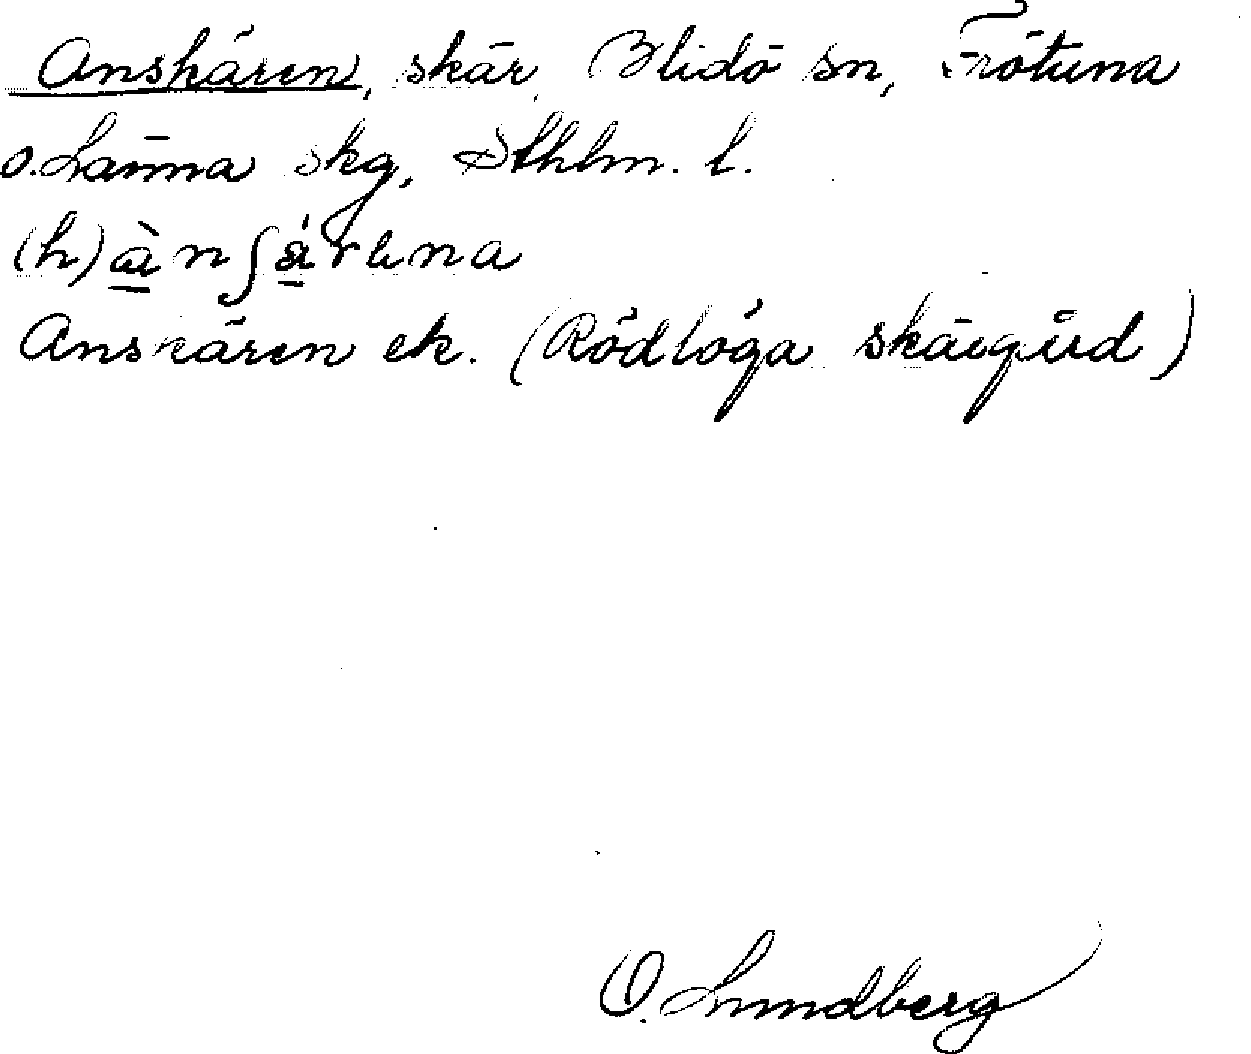 Anskären, skär, Blidö sn, Frötuna
o. Länna skg, Sthlm. l.
(h)ànʃä́rena
Anskären ek. (Rödlöga skärgård)
O. Lundberg